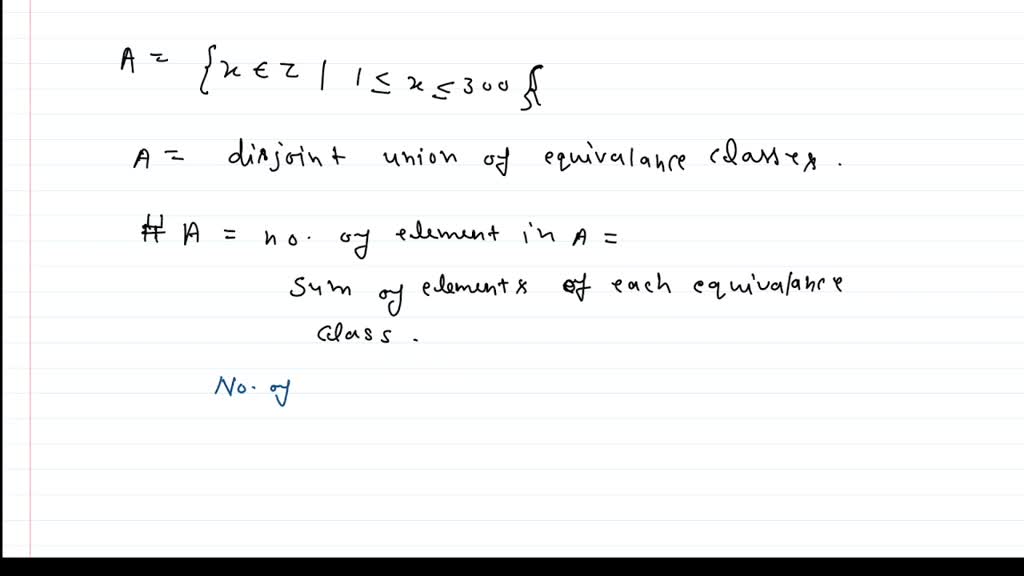 A = {x ∈ Z | 1 ≤ x ≤ 300}
A = disjoint union of equivalance classes.
# A = no. of element in A =
Sum of elements of each equivalance
class.
No. of